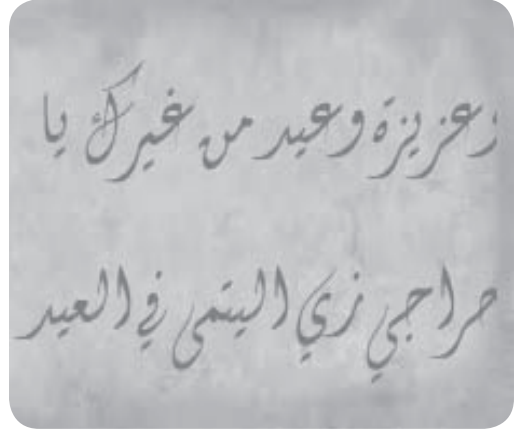 عزيزة وعيد من غيرك يا
حراجي زي اليتمى في العيد